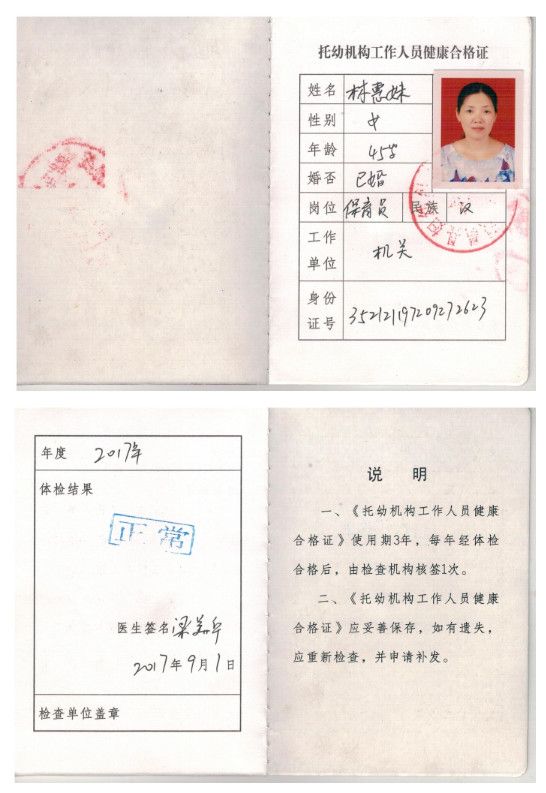 托幼机构工作人员健康合格证
姓名 林惠妹
性别 女
年龄 45岁
婚否 已婚
岗位 保育员 民族 汉
工作单位 机关
身份证号 352121197209272623
年度 2017年
体检结果
正常
医生签名
2017年9月1日
检查单位盖章
说 明
一、《托幼机构工作人员健康
合格证》使用期3年，每年经体检
合格后，由检查机构核签1次。
二、《托幼机构工作人员健康
合格证》应妥善保存，如有遗失，
应重新检查，并申请补发。